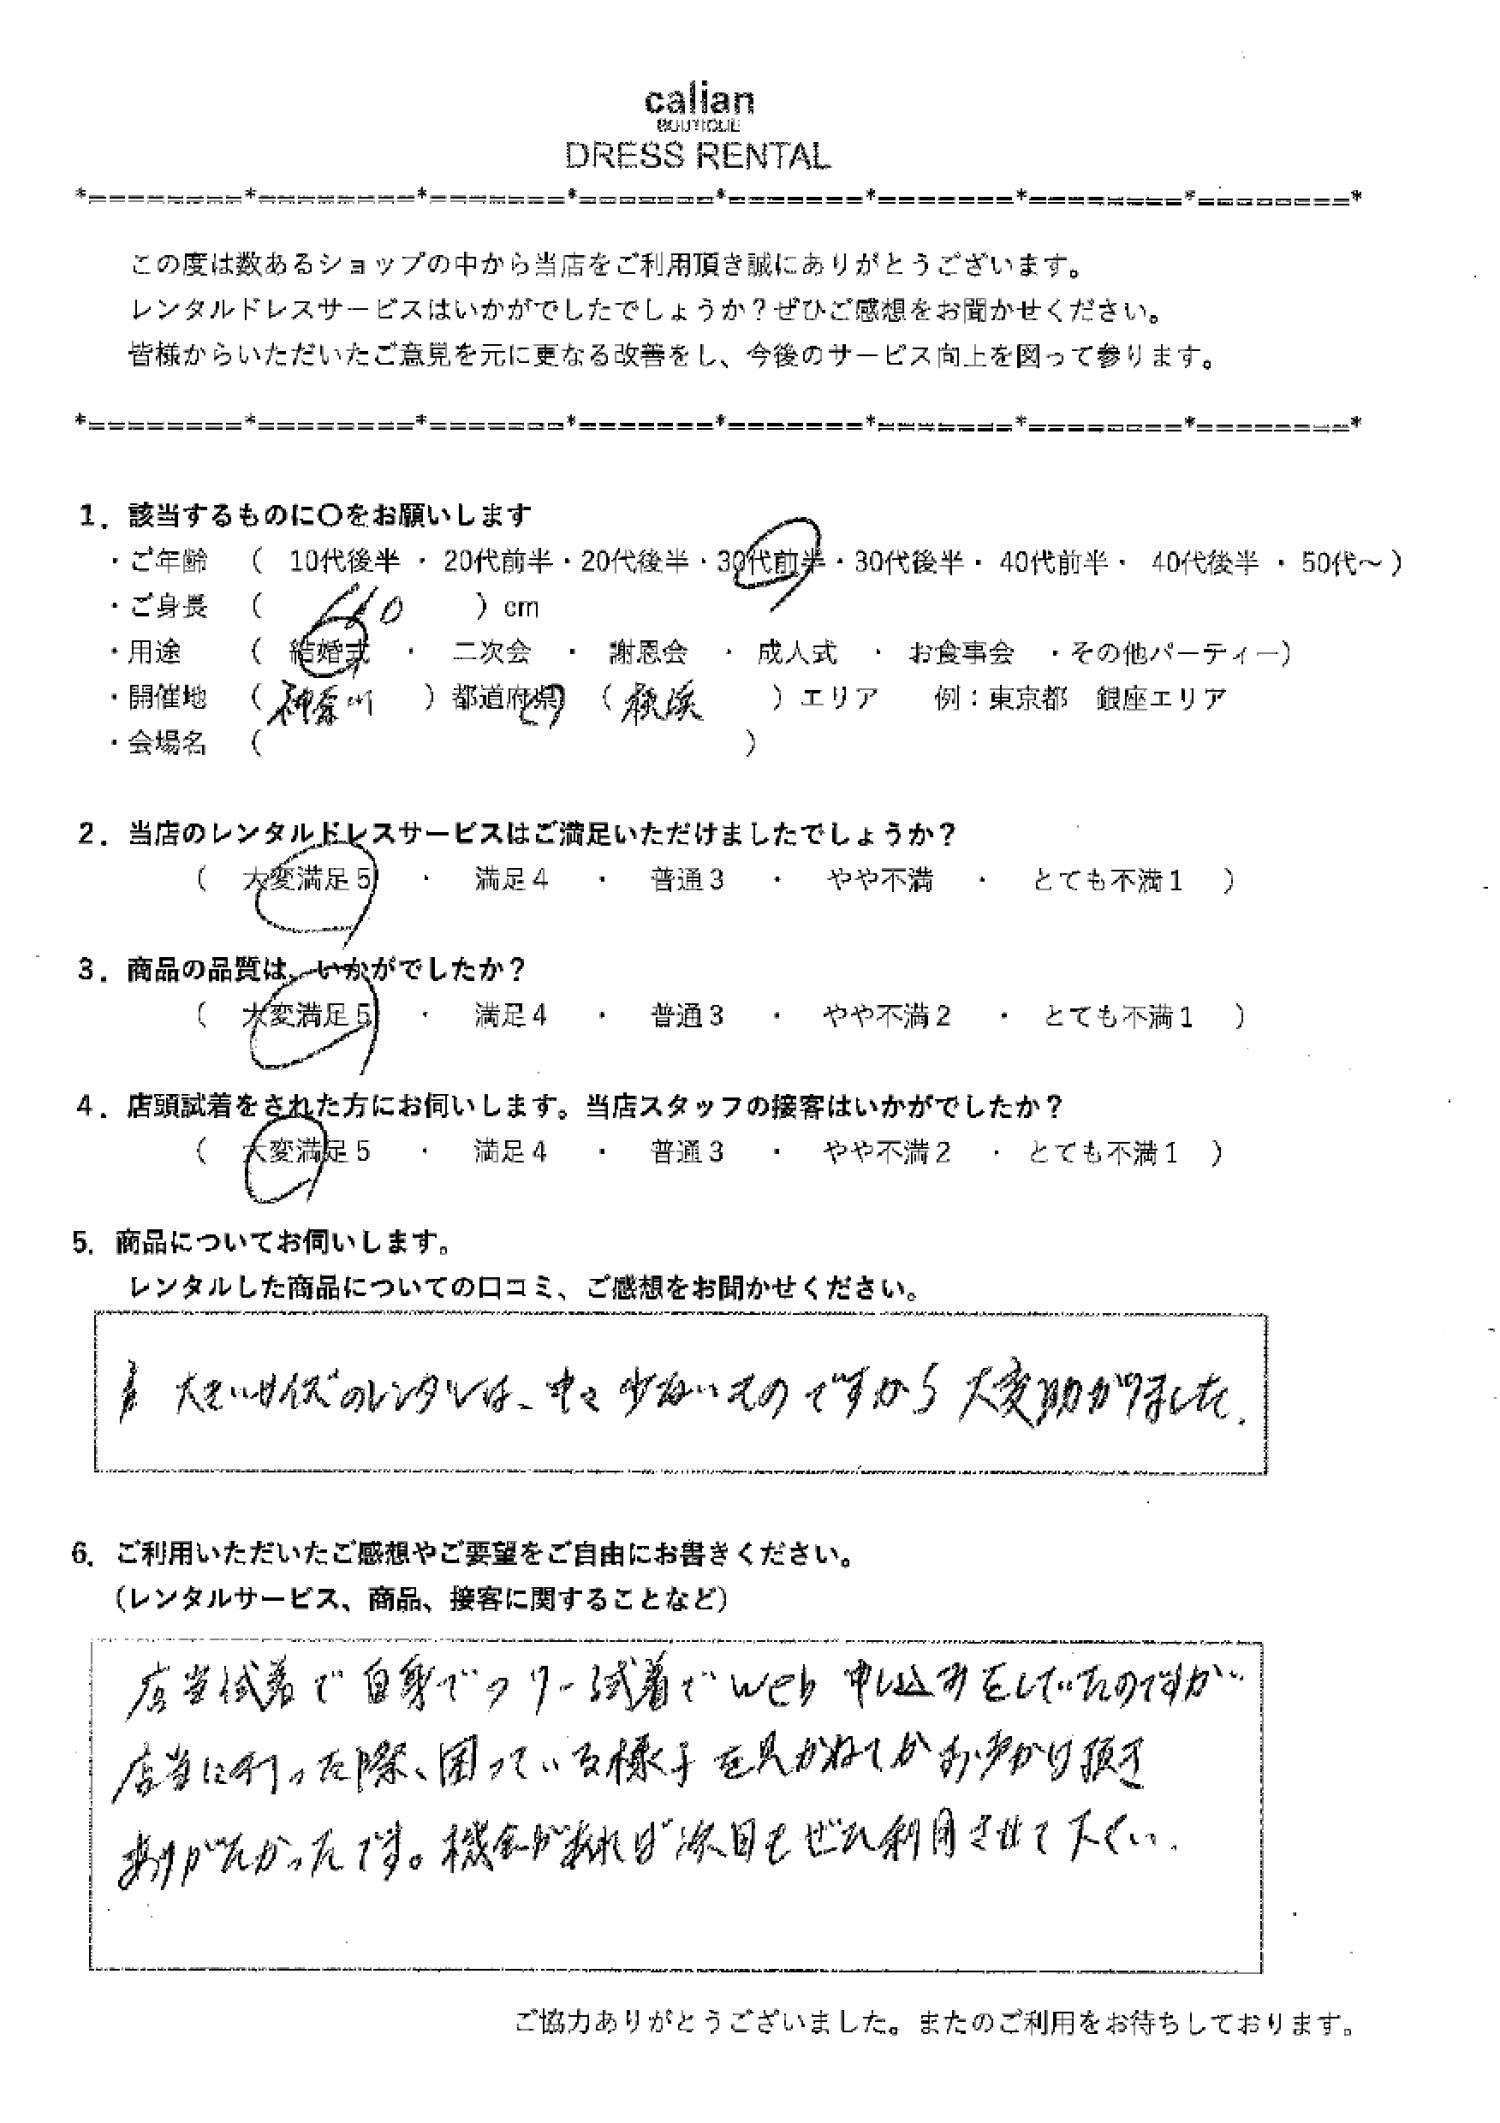 calian
BOUTIQUE
DRESS RENTAL
*========*========*=======*=======*=======*=======*========*========*
この度は数あるショップの中から当店をご利用頂き誠にありがとうございます。
レンタルドレスサービスはいかがでしたでしょうか？ぜひご感想をお聞かせください。
皆様からいただいたご意見を元に更なる改善をし、今後のサービス向上を図って参ります。
*========*========*=======*=======*=======*=======*========*========*
1．該当するものに〇をお願いします
・ご年齢 （ 10代後半 ・ 20代前半・20代後半・30代前半・30代後半・ 40代前半・ 40代後半 ・ 50代～ ）
・ご身長 （ 160 ）cm
・用途 （ 結婚式 ・ 二次会 ・ 謝恩会 ・ 成人式 ・ お食事会 ・その他パーティー）
・開催地 （ 神奈川 ）都道府県 （ 横浜 ）エリア 例：東京都 銀座エリア
・会場名 （ ）
2．当店のレンタルドレスサービスはご満足いただけましたでしょうか？
（ 大変満足5 ・ 満足4 ・ 普通3 ・ やや不満 ・ とても不満1 ）
3．商品の品質は、いかがでしたか？
（ 大変満足5 ・ 満足4 ・ 普通3 ・ やや不満2 ・ とても不満1 ）
4．店頭試着をされた方にお伺いします。当店スタッフの接客はいかがでしたか？
（ 大変満足5 ・ 満足4 ・ 普通3 ・ やや不満2 ・ とても不満1 ）
5．商品についてお伺いします。
レンタルした商品についての口コミ、ご感想をお聞かせください。
大きいサイズのレンタルは、中々少ないものですから大変助かりました.
6．ご利用いただいたご感想やご要望をご自由にお書きください。
（レンタルサービス、商品、接客に関することなど）
店当試着で自身でフリー試着でweb 申し込みをしていたのですが
店当に行った際、困っている様子を見かねてかお声がけ頂き
ありがたかったです。機会があれば次回もぜひ利用させて下さい.
ご協力ありがとうございました。またのご利用をお待ちしております。